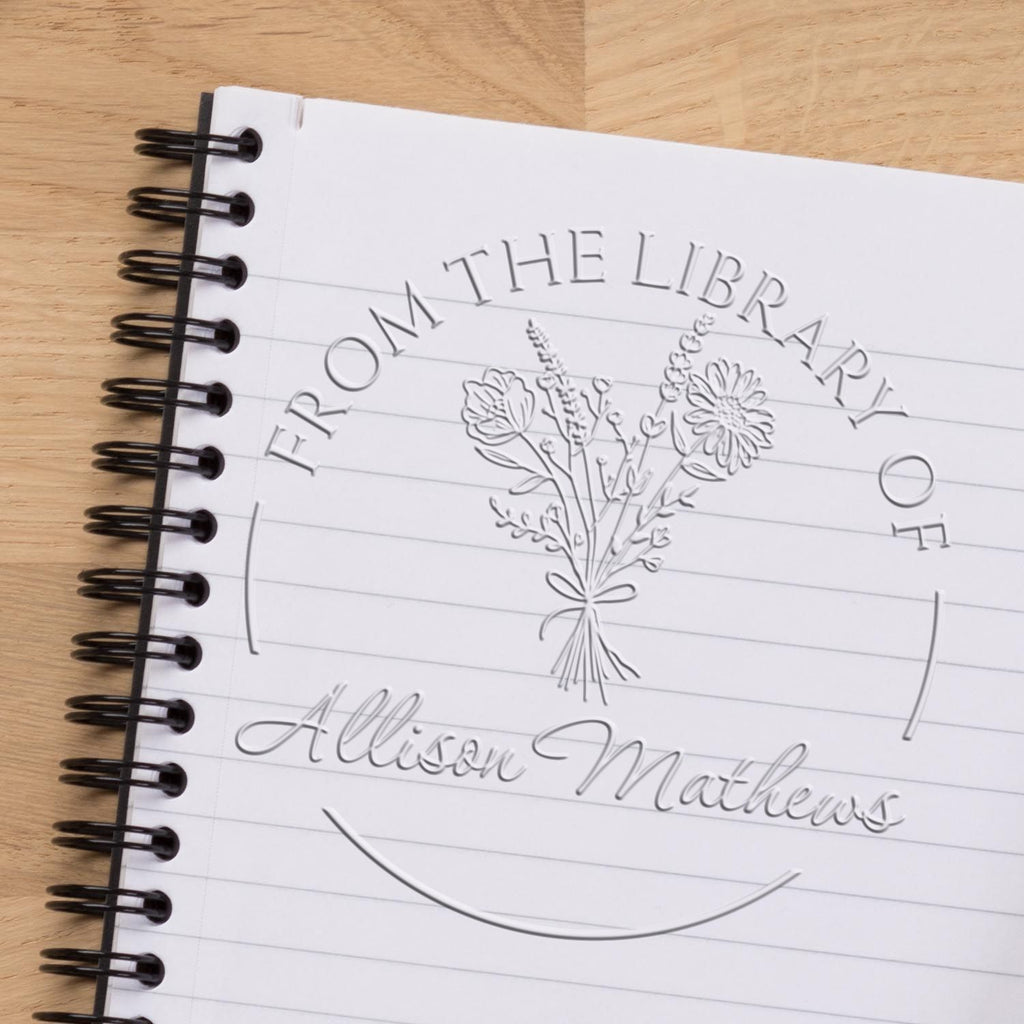 FROM THE LIBRARY OF
Allison Mathews